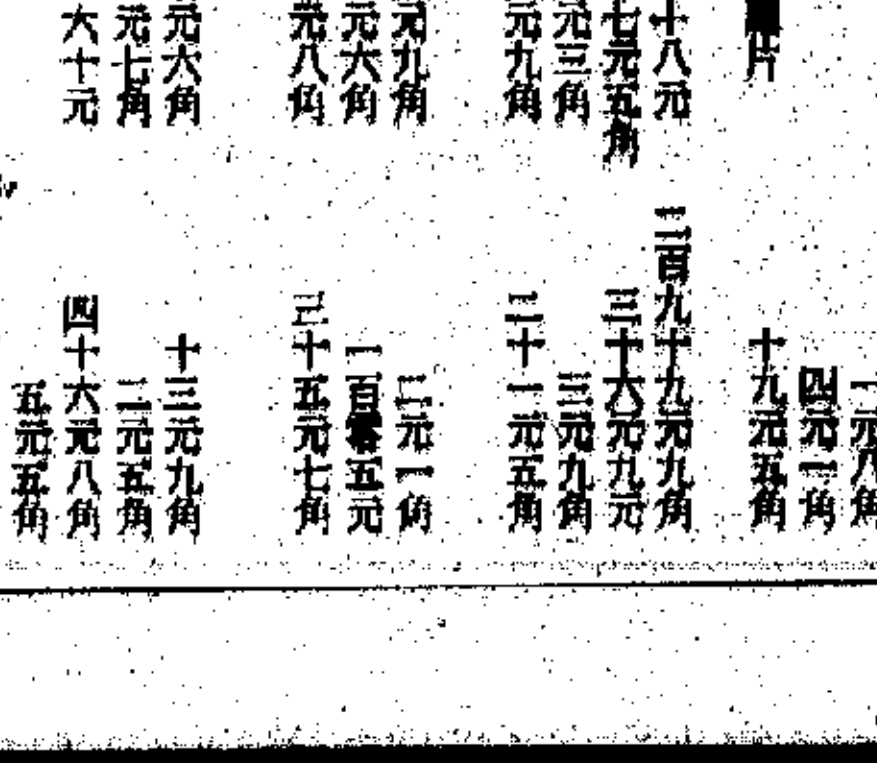 片
十八元
七元五角
元三角
元九角
元九角
元六角
元八角
元六角
元七角
六十元
一元八角
四元一角
十九元五角
二百九十九元九角
三十六元九元
三元九角
二十一元五角
二元一角
一百零五元
三十五元七角
十三元九角
二元五角
四十六元八角
五元五角